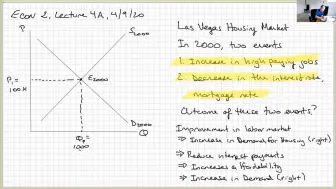 Econ 2, Lecture 4A, 4/9/20
P
S2000
P1 =
100K
E2000
D2000
Q1 =
1000
Q
Las Vegas Housing Market
In 2000, two events
1. Increase in high paying jobs
2. Decrease in the interest rate,
mortgage rate
Outcome of these two events?
Improvement in labor market
⇒ Increase in Demand for housing (right)
⇒ Reduce interest payments
⇒ Increases affordability
⇒ Increase in Demand (right)